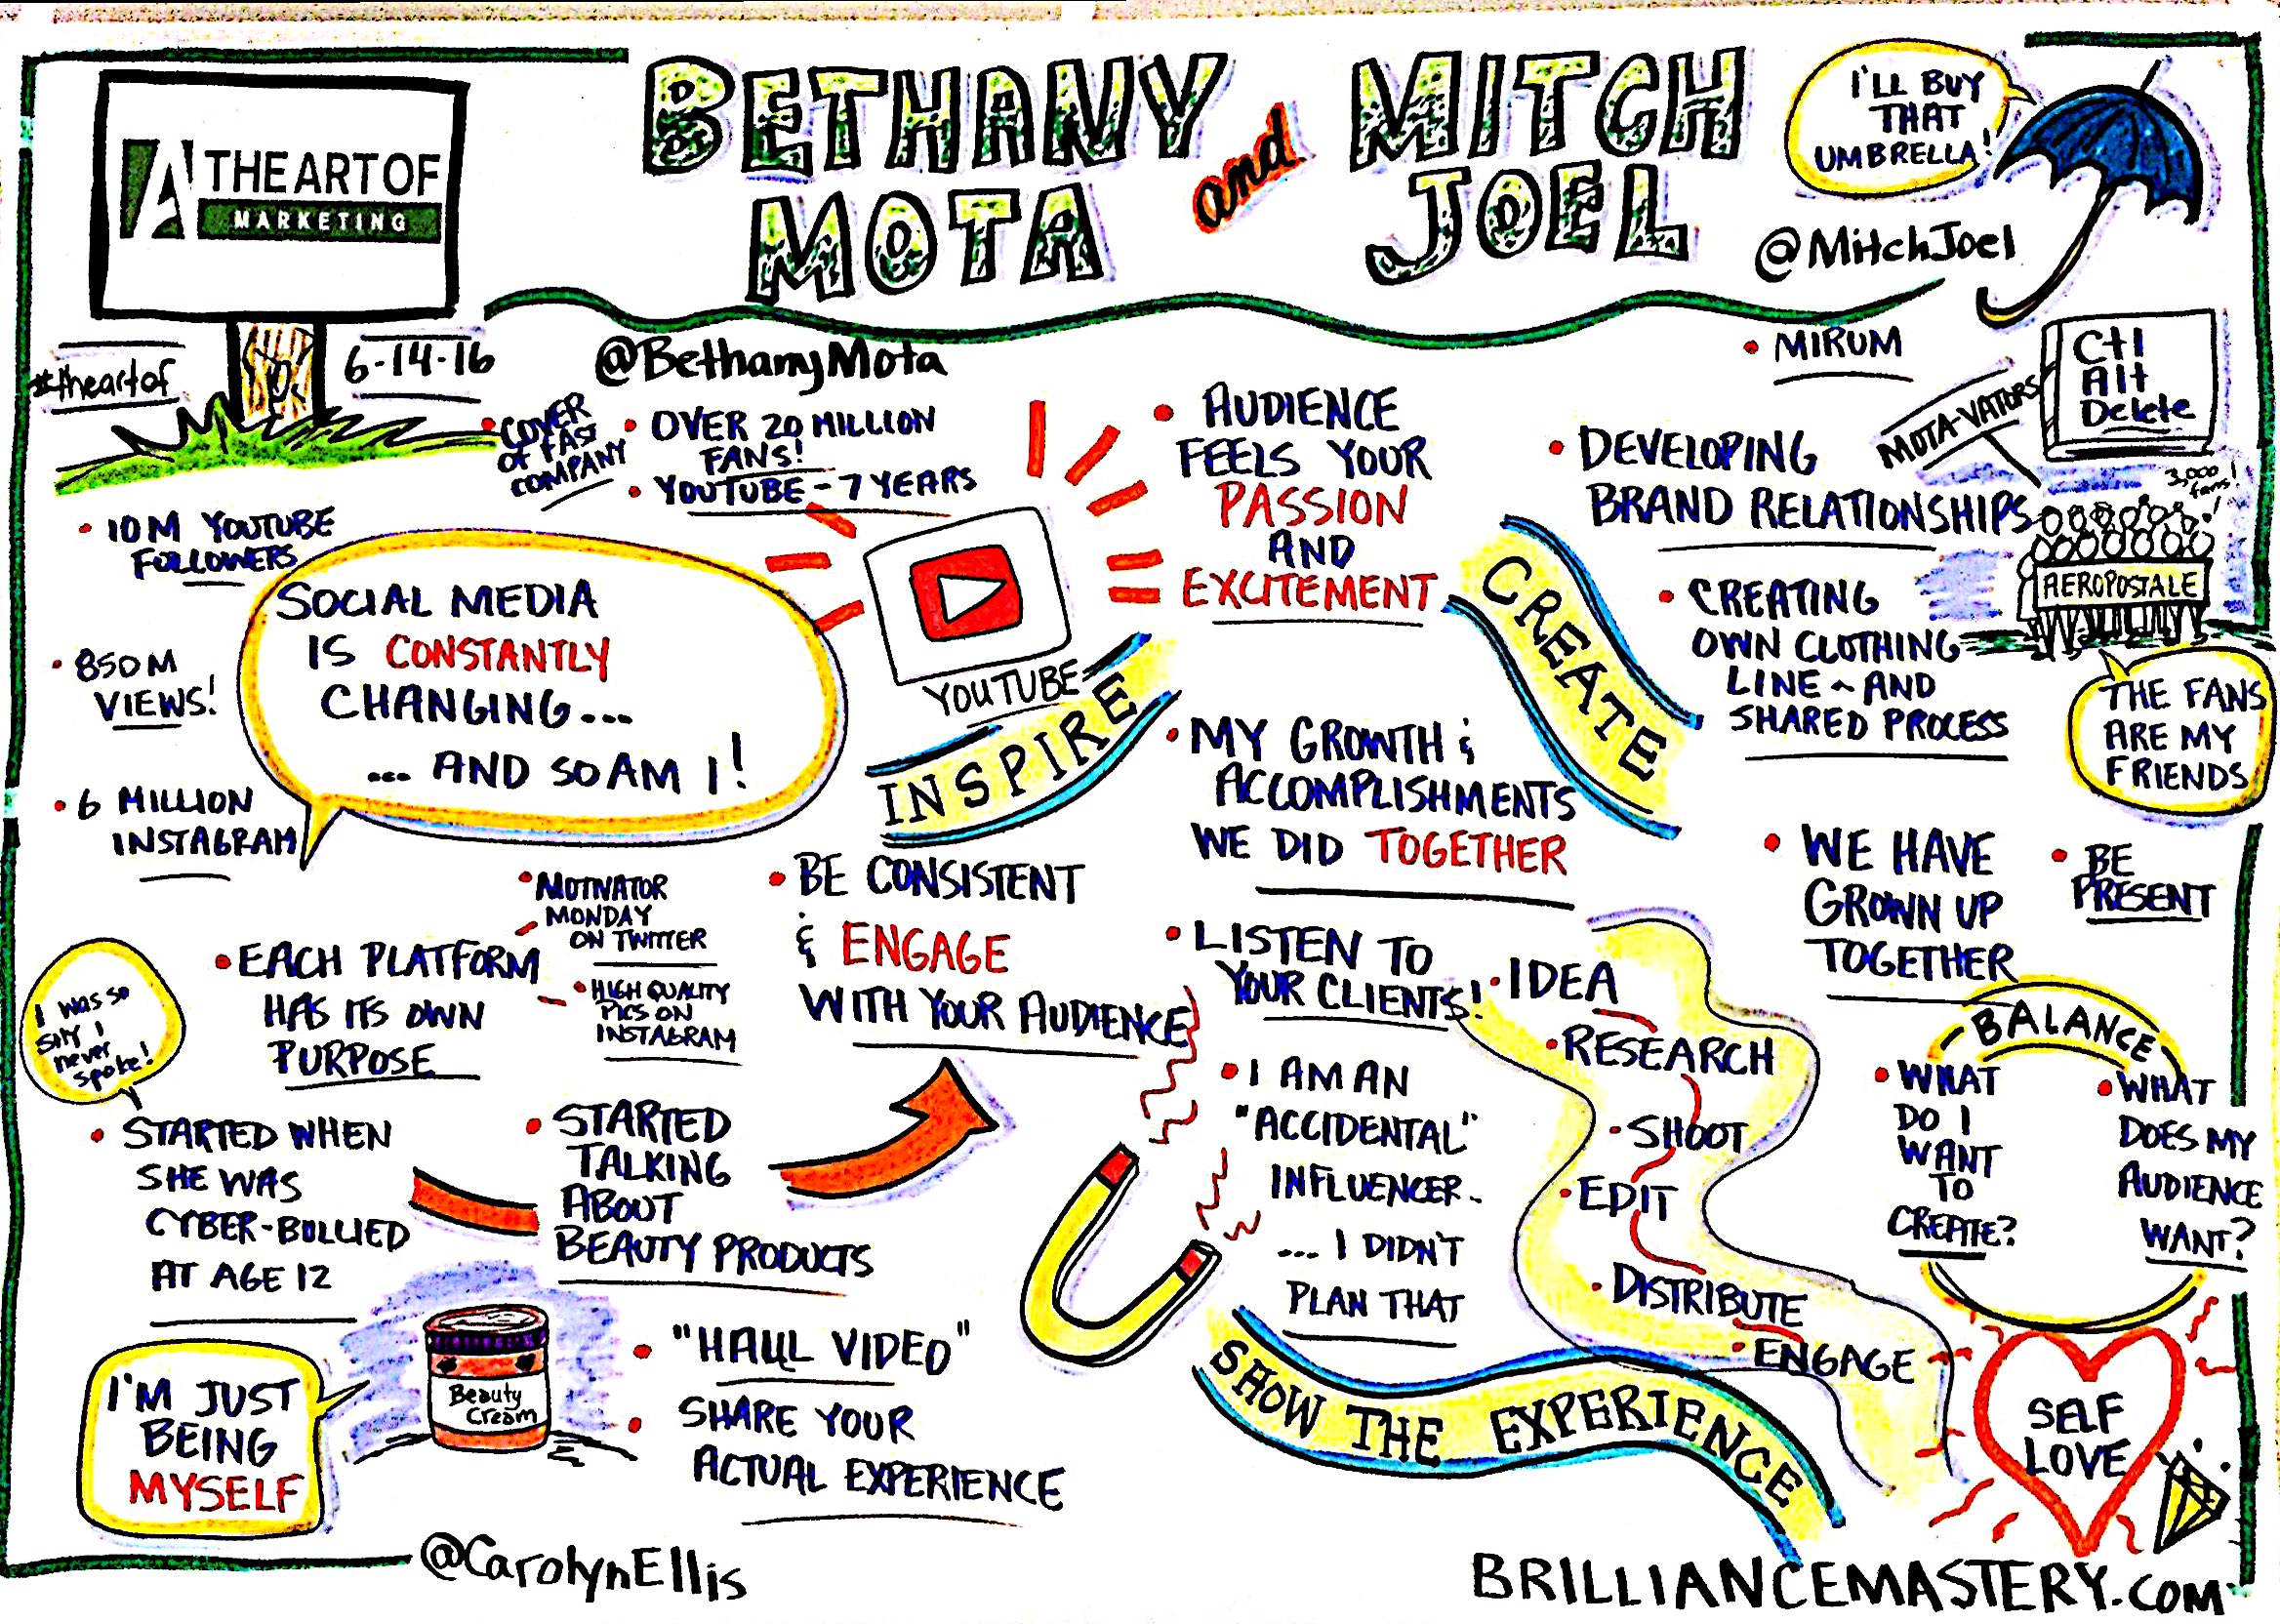 BETHANY
MOTA
and
MITCH
JOEL
I'LL BUY
THAT
UMBRELLA!
@MitchJoel
A THE ART OF
MARKETING
#theartof
6-14-16
@BethanyMota
• COVER
OF FAST
COMPANY
• OVER 20 MILLION
FANS!
• YOUTUBE - 7 YEARS
• 10M YOUTUBE
FOLLOWERS
• 850M
VIEWS!
• 6 MILLION
INSTAGRAM
SOCIAL MEDIA
IS CONSTANTLY
CHANGING...
... AND SO AM I!
YOUTUBE
INSPIRE
• AUDIENCE
FEELS YOUR
PASSION
AND
EXCITEMENT
CREATE
• MIRUM
Ctl
Alt
Delete
MOTA-VATORS
3,000
fans!
• DEVELOPING
BRAND RELATIONSHIPS
AEROPOSTALE
• CREATING
OWN CLOTHING
LINE ~ AND
SHARED PROCESS
THE FANS
ARE MY
FRIENDS
• MY GROWTH &
ACCOMPLISHMENTS
WE DID TOGETHER
• WE HAVE
GROWN UP
TOGETHER
• BE
PRESENT
• EACH PLATFORM
HAS ITS OWN
PURPOSE
• MOTIVATOR
MONDAY
ON TWITTER
• HIGH QUALITY
PICS ON
INSTAGRAM
• BE CONSISTENT
& ENGAGE
WITH YOUR AUDIENCE
• LISTEN TO
YOUR CLIENTS!
• I AM AN
"ACCIDENTAL"
INFLUENCER.
... I DIDN'T
PLAN THAT
• IDEA
• RESEARCH
• SHOOT
• EDIT
• DISTRIBUTE
• ENGAGE
BALANCE
• WHAT
DO I
WANT
TO
CREATE?
• WHAT
DOES MY
AUDIENCE
WANT?
I was so
shy I
never
spoke!
• STARTED WHEN
SHE WAS
CYBER-BULLIED
AT AGE 12
• STARTED
TALKING
ABOUT
BEAUTY PRODUCTS
I'M JUST
BEING
MYSELF
Beauty
Cream
• "HAUL VIDEO"
• SHARE YOUR
ACTUAL EXPERIENCE
SHOW THE EXPERIENCE
SELF
LOVE
@CarolynEllis
BRILLIANCEMASTERY.COM